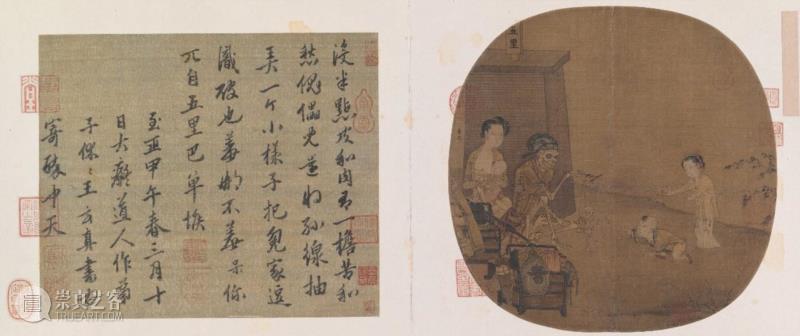 没半點皮和肉有一擔苦和
愁傀儡兒還將絲線抽
弄一个小樣子把冤家逗
識破也羞那不羞呆你
兀自五里巴單堠
至正甲午春三月十
日大癡道人作弟
子休々王玄真書右
寄醉中天
五里
崇真艺客
TRUEART.COM